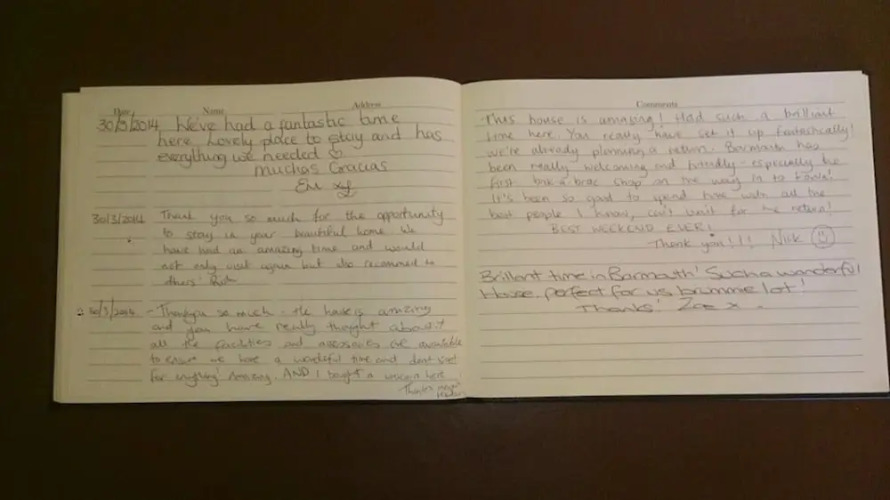 Date Name Address
30/3/2014 We've had a fantastic time
here. Lovely place to stay and has
everything we needed
muchas Gracias
30/3/2014 Thank you so much for the opportunity
to stay in your beautiful home. We
have had an amazing time and would
not only visit again but also recommend to
others!
30/3/2014 - Thankyou so much - the house is amazing
and you have really thought about
all the facilities and are available
to ensure we have a wonderful time and dont
for anything! Amazing. AND I bought a here
Thanks
Comments
This house is amazing! Had such a brilliant
time here. You really have set it up fantastically!
we're already planning a return. Barmouth has
been really welcoming and friendly - especially the
first bric-a-brac shop on the way in to town!
It's been so good to spend time with all the
best people I know, can't wait for the return!
BEST WEEKEND EVER!
Thank you!!! Nick
Brilliant time in Barmouth! Such a wonderful
House, perfect for us brummie lot!
Thanks! Zoe x